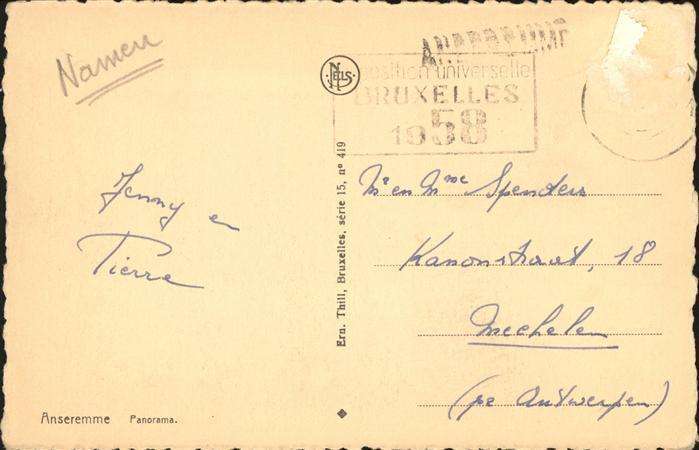 Namen
ANSEREMME
Exposition universelle
BRUXELLES
1958
NELS
Jenny en
Pierre
Ern. Thill, Bruxelles, série 15, n° 419
Mr en Mme Spenders
Kanonstraat, 18
Mechelen
(pr Antwerpen)
Anseremme Panorama.